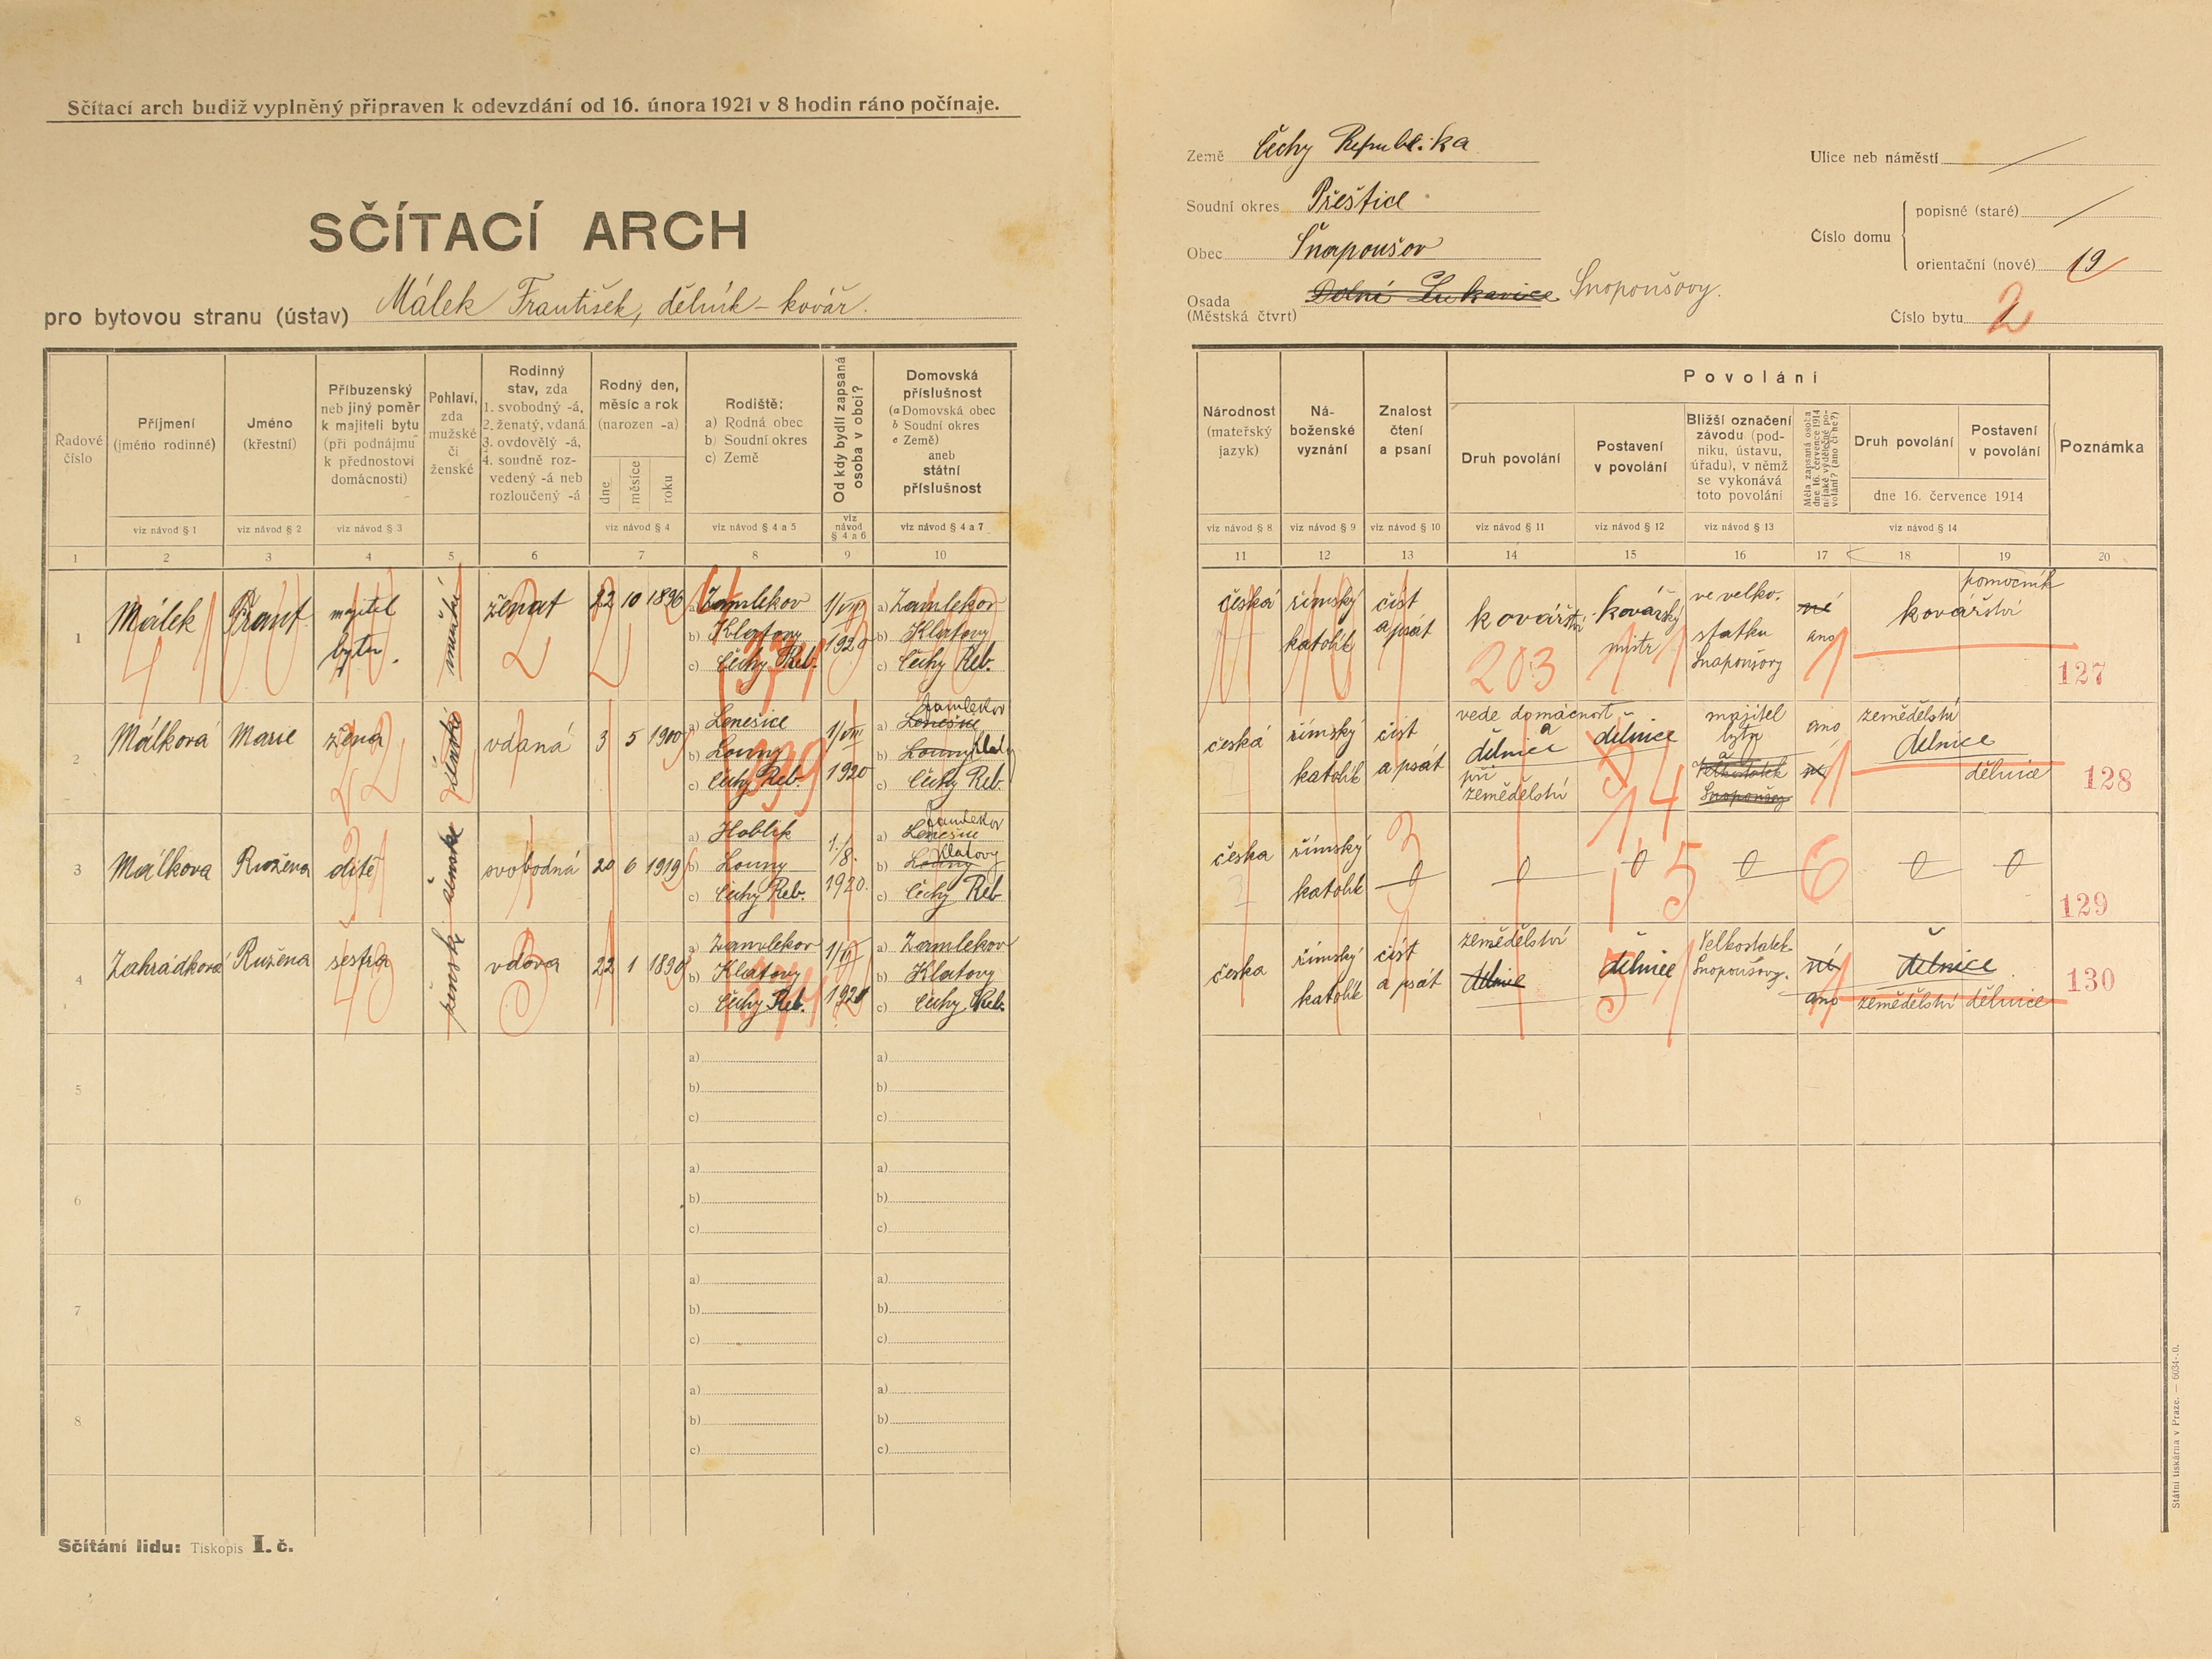 Sčítací arch budiž vyplněný připraven k odevzdání od 16. února 1921 v 8 hodin ráno počínaje.
SČÍTACÍ ARCH
pro bytovou stranu (ústav) Málek František, dělník - kovář.
Země Čechy Republika
Soudní okres Přeštice
Obec Šnopoušov
Osada (Městská čtvrt) Dolní Lukavice Snopoušovy.
Ulice neb náměstí
Číslo domu
popisné (staré)
orientační (nové) 19
Číslo bytu 2
Řadové číslo
Příjmení (jméno rodinné)
Jméno (křestní)
Příbuzenský neb jiný poměr k majiteli bytu (při podnájmu k přednostovi domácnosti)
Pohlaví, zda mužské či ženské
Rodinný stav, zda 1. svobodný -á, 2. ženatý, vdaná 3. ovdovělý -á, 4. soudně rozvedený -á neb rozloučený -á
Rodný den, měsíc a rok (narozen -a)
dne měsíce roku
Rodiště: a) Rodná obec b) Soudní okres c) Země
Od kdy bydlí zapsaná osoba v obci?
Domovská příslušnost (a Domovská obec b Soudní okres c Země) aneb státní příslušnost
viz návod § 1 viz návod § 2 viz návod § 3 viz návod § 4 viz návod § 4 a 5 viz návod § 4 a 6 viz návod § 4 a 7
1 2 3 4 5 6 7 8 9 10
Národnost (mateřský jazyk)
Náboženské vyznání
Znalost čtení a psaní
Povolání
Druh povolání
Postavení v povolání
Bližší označení závodu (podniku, ústavu, úřadu), v němž se vykonává toto povolání
Měla zapsaná osoba dne 16. července 1914 nějaké výdělečné povolání? (ano či ne?)
Druh povolání
Postavení v povolání
dne 16. července 1914
Poznámka
viz návod § 8 viz návod § 9 viz návod § 10 viz návod § 11 viz návod § 12 viz návod § 13 viz návod § 14
11 12 13 14 15 16 17 18 19 20
1 Málek Frant. majitel bytu. mužské ženat 22 10 1896
a) Zamlekov b) Klatovy c) Čechy Reb.
1/VIII 1920
a) Zamlekov b) Klatovy c) Čechy Reb.
česká římský katolík číst a psát kovářství kovářský mistr ve velkostatku Snopoušovy né ano kovářství pomocník
203
127
2 Málková Marie žena ženské vdaná 3 5 1900
a) Lenešice b) Louny c) Čechy Reb.
1/VIII 1920
a) Lenešice Zamlekov b) Louny Klatovy c) Čechy Reb.
česká římský katolík číst a psát vede domácnost a dělnice při zemědělství dělnice majitel bytu a Velkostatek Snopoušovy ano né zemědělství dělnice dělnice
128
3 Málkova Ružena dítě ženské svobodná 20 6 1919
a) Hoblík b) Louny c) Čechy Reb.
1./8. 1920.
a) Lenešice Zamlekov b) Louny Klatovy c) Čechy Reb
česka římský katolík 0 0 0 0 0 0
129
4 Zahrádková Ružena sestra ženské vdova 22 1 1890
a) Zamlekov b) Klatovy c) Čechy Reb.
a) Zamlekov b) Klatovy c) Čechy Reb.
česka římský katolík číst a psát zemědělství dělnice dělnice Velkostatek Snopoušovy. né ano dělnice zemědělství dělnice
130
5 a) b) c) a) b) c)
6 a) b) c) a) b) c)
7 a) b) c) a) b) c)
8 a) b) c) a) b) c)
Sčítání lidu: Tiskopis I. č.
Státní tiskárna v Praze. — 6034-.0.